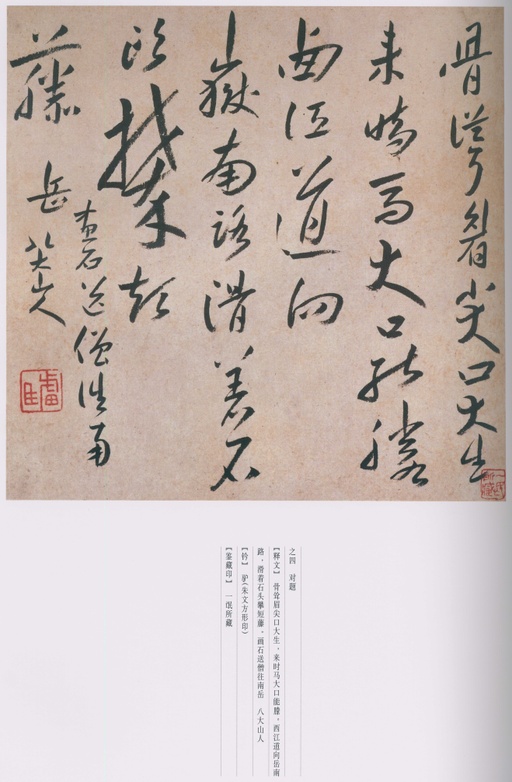 骨聳眉尖口大生
来時馬大口能
西江道向
嶽南路滑着石
頭攀短
藤
画石送僧往南
岳 八大山人
驴
一氓所藏
之四 对题
【释文】 骨耸眉尖口大生，来时马大口能滕。西江道向岳南
路，滑着石头攀短藤。画石送僧往南岳 八大山人
【钤】 驴(朱文方形印)
【鉴藏印】 一氓所藏